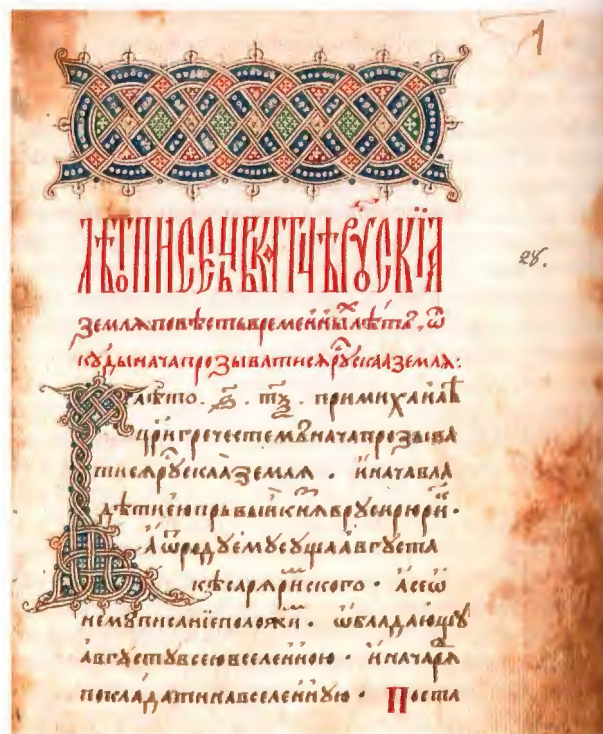 1
лѣтописе́ць вкратцѣ рꙋ́скїа
землѧ повѣсть временны́хъ лѣтъ, ѿ
кꙋды нача прозыватисѧ рꙋскаѧ землѧ:
лѣто · ѕ҃ · т҃ѯ · при михаилѣ
цр҃и гречестемъ нача прозыва
тисѧ рꙋскаѧ землѧ · и нача вла
дѣти ею прьвыи кнѧ в рꙋси рюри ·
а ѿ родꙋ емꙋ сꙋща авгꙋста
кѣсарѧ римского · а се ѿ
немꙋ писанїе положи · ѡбладающꙋ
авгꙋстꙋ всею вселенною · и нача рѧ
покладати на вселеннꙋю · Поста